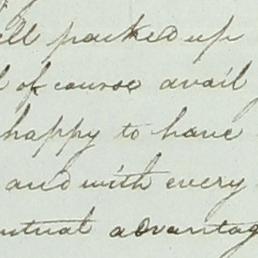 ell packed up
of course avail
happy to have
and with every
utual advantag